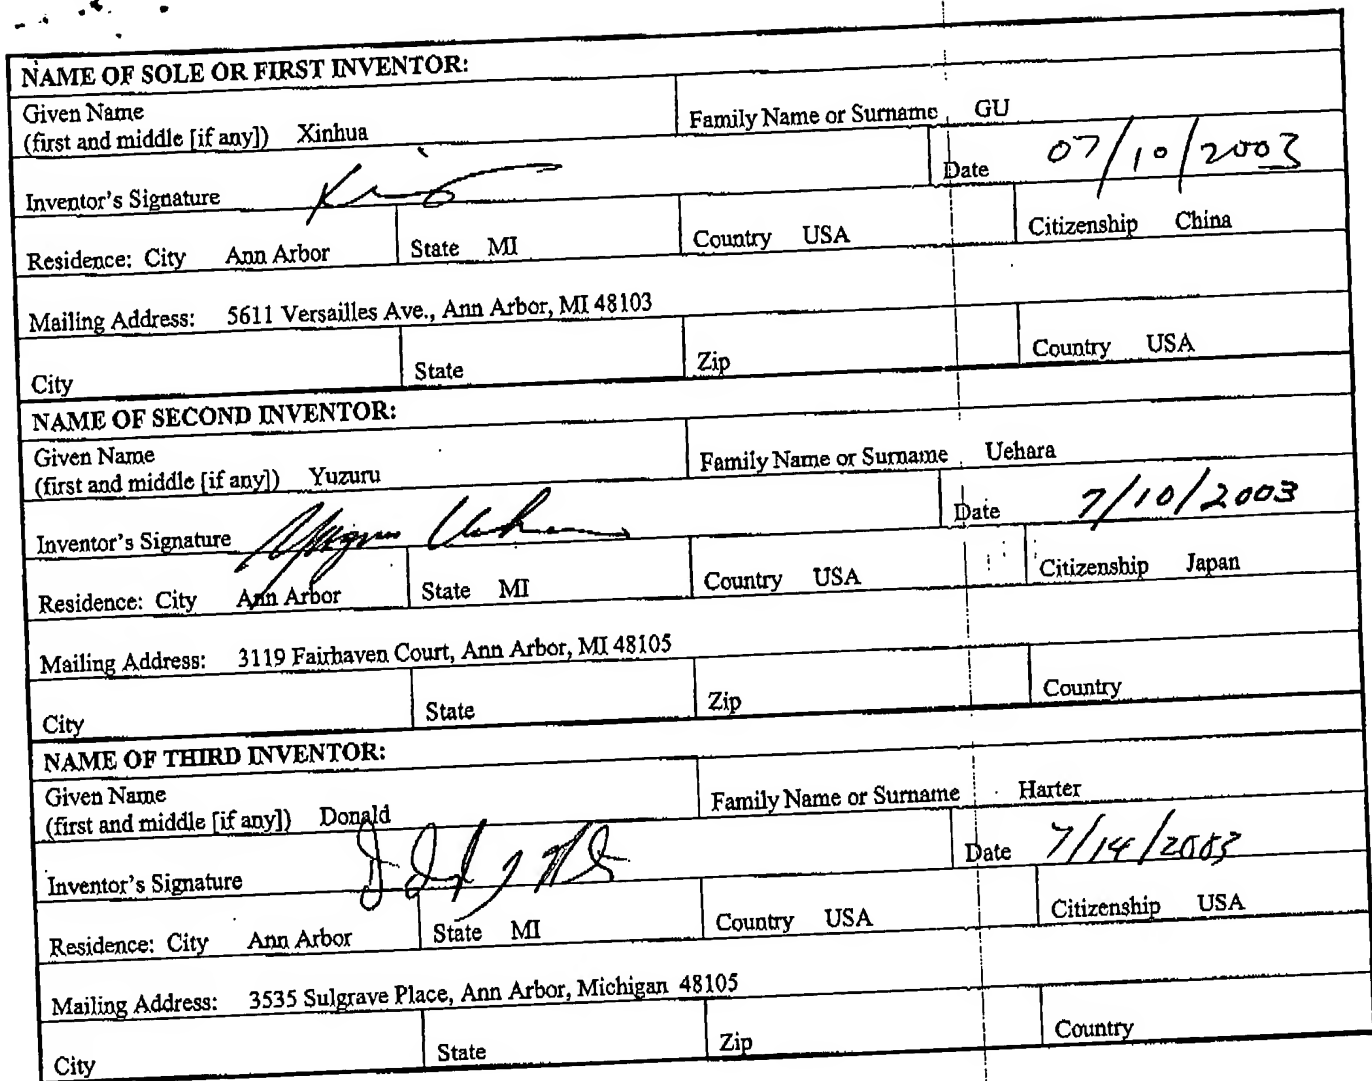 NAME OF SOLE OR FIRST INVENTOR:
Given Name
(first and middle [if any]) Xinhua
Family Name or Surname GU
Inventor's Signature
Date 07/10/2003
Residence: City Ann Arbor State MI Country USA Citizenship China
Mailing Address: 5611 Versailles Ave., Ann Arbor, MI 48103
City State Zip Country USA
NAME OF SECOND INVENTOR:
Given Name
(first and middle [if any]) Yuzuru
Family Name or Surname Uehara
Inventor's Signature
Date 7/10/2003
Residence: City Ann Arbor State MI Country USA Citizenship Japan
Mailing Address: 3119 Fairhaven Court, Ann Arbor, MI 48105
City State Zip Country
NAME OF THIRD INVENTOR:
Given Name
(first and middle [if any]) Donald
Family Name or Surname Harter
Inventor's Signature
Date 7/14/2003
Residence: City Ann Arbor State MI Country USA Citizenship USA
Mailing Address: 3535 Sulgrave Place, Ann Arbor, Michigan 48105
City State Zip Country